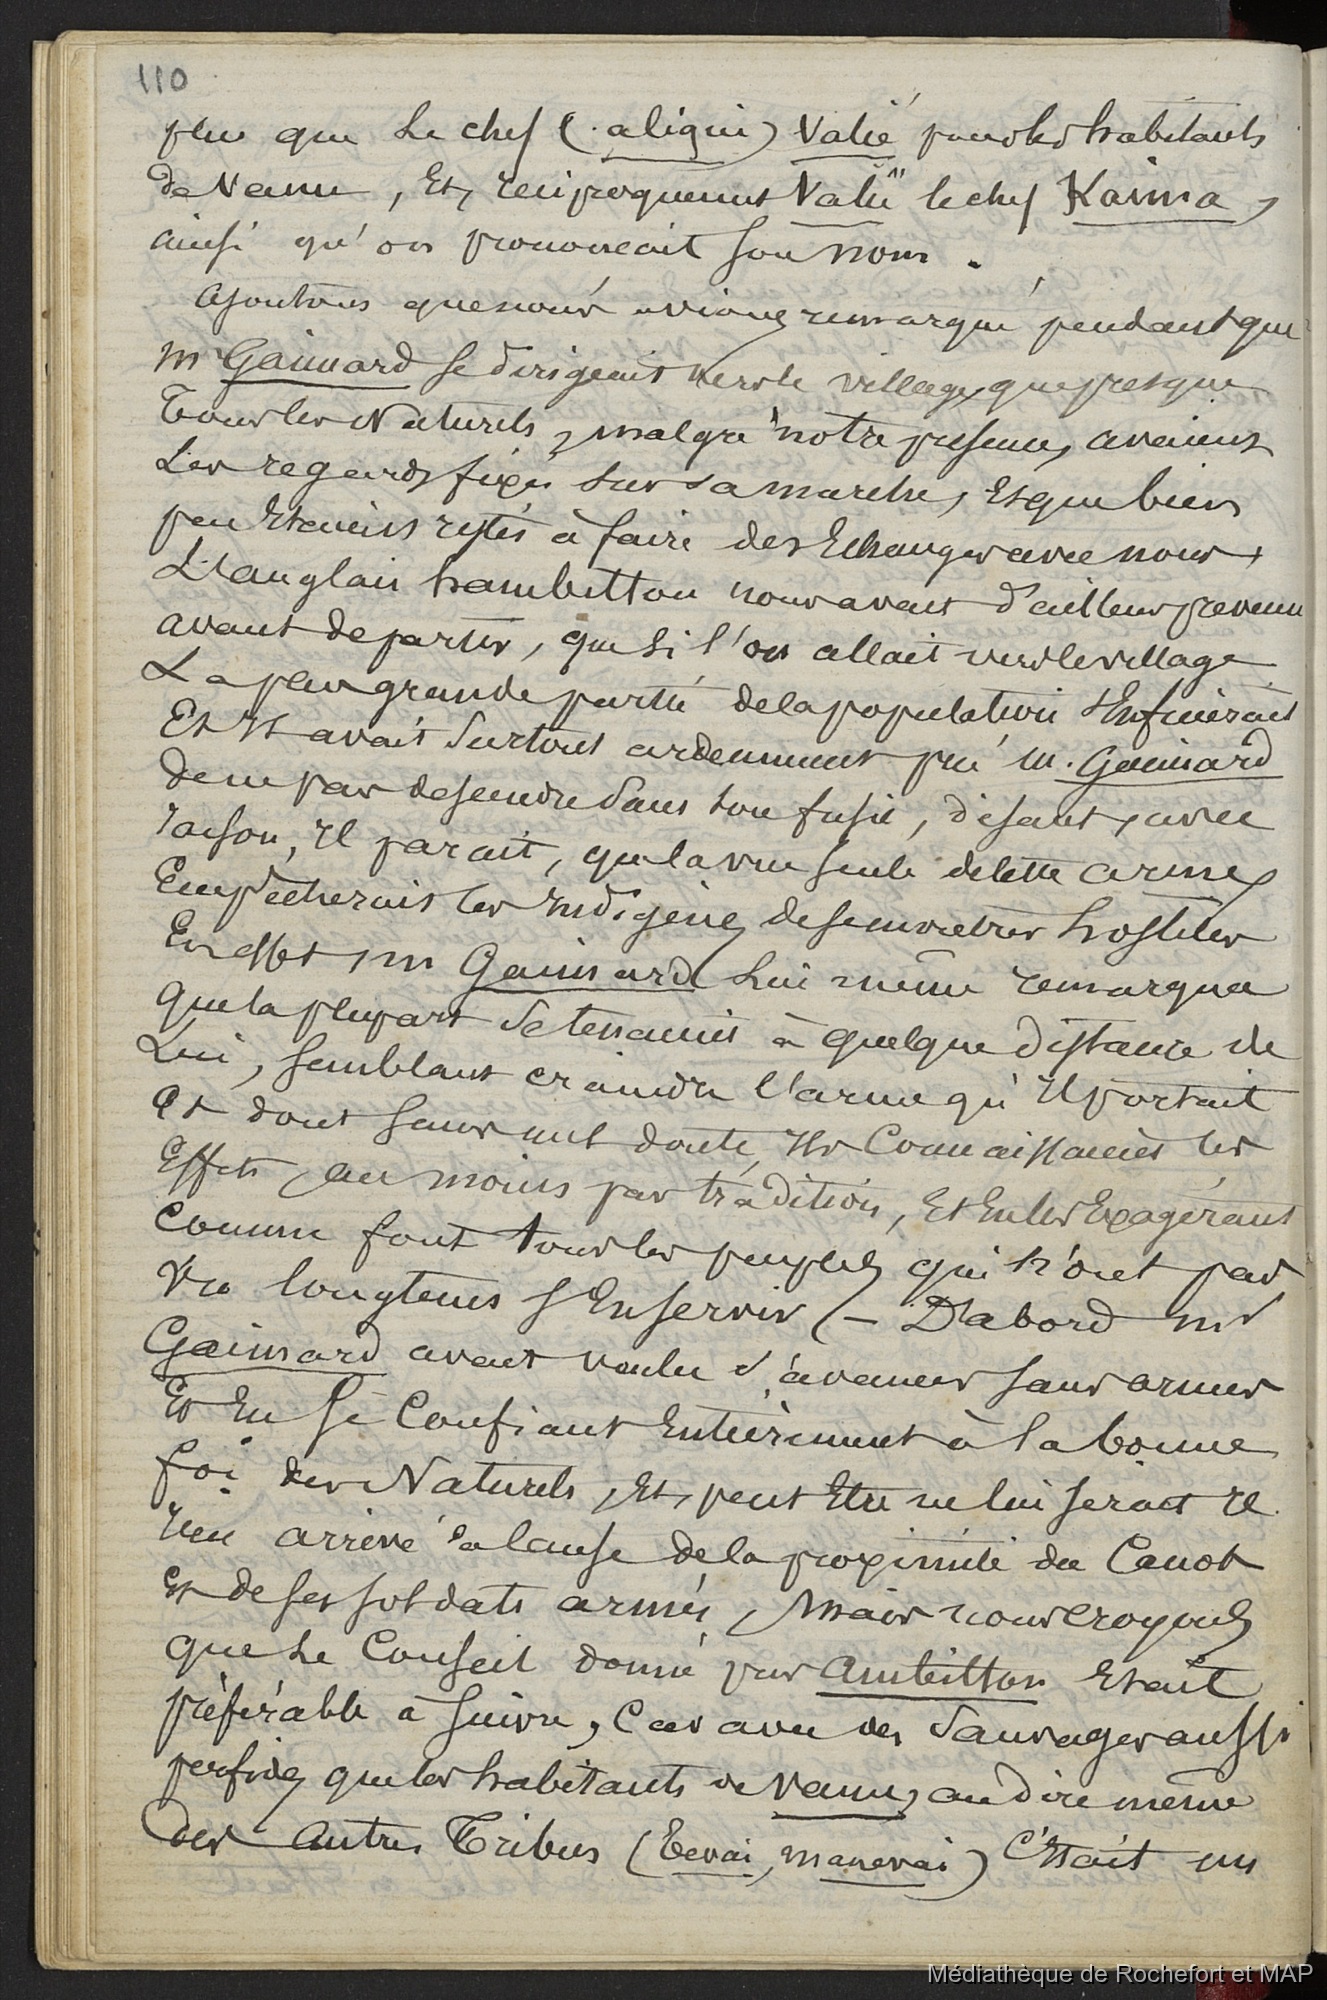 110
plus que le chef (aligui) Valié pour les habitants
de Vanu, Et, reciproquement Valié le chef Kaima,
ainsi qu'on prononçait son nom.
Ajoutons que nous avions remarqué pendant que
Mr Gaimard se dirigeait vers le village, que presque
Tous les Naturels, malgré notre presence, avaient
Les regards fixés sur sa marche, Et que bien
peu Etaient restés à faire des Echanges avec nous,
L'anglais hambilton nous avait d'ailleurs prevenu
avant de partir, que si l'on allait vers le village
La plus grande partie de la population s'Enfuirait
Et Il avait surtout ardemment prié m. Gaimard
de ne pas descendre sans son fusil, disant, avec
raison, Il parait, que la vue seule de cette arme
Empêcherait les Indigènes de se montrer hostiles
En effet, m Gaimard Lui même remarqua
que la plupart se tenaient à quelque distance de
Lui, semblant craindre l'arme qu'Il portait
Et dont sans nul doute, Ils Connaissaient les
Effets, au moins par tradition, Et En les Exagérant
Comme font tous les peuples qui n'ont pas
vu longtems s'En servir, - D'abord mr
Gaimard avait voulu s'avancer sans armes
Et En se Confiant Entièrement à la bonne
foi des Naturels, Et, peut Etre ne lui serait Il
rien arrivé à cause de la proximité du Canot
Et de ses soldats armés, Mais nous croyons
que Le Conseil donné par Ambitton Etait
préférable à suivre, Car avec des Sauvages aussi
perfides que les habitants de Vanu, au dire même
des autres Tribus (Tevai, manevai) C'Etait un
Médiathèque de Rochefort et MAP